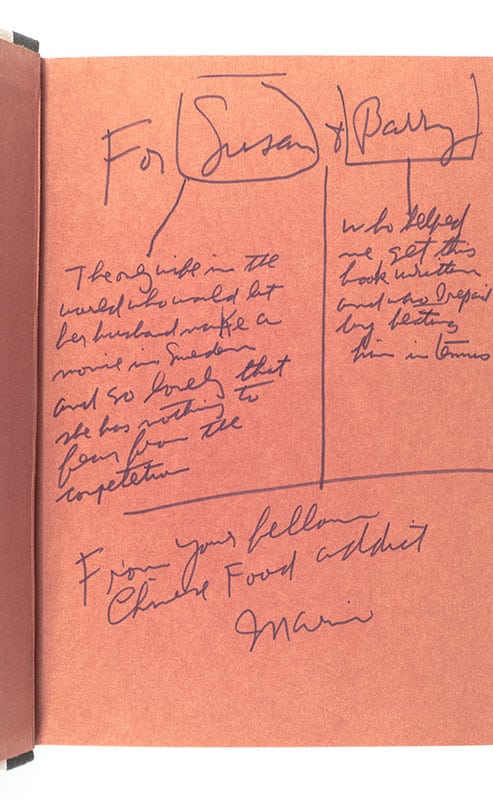 For Susan & Barry
The only wife in the
world who would let
her husband make a
movie in Sweden
and so lovely that
she has nothing to
fear from the
competetion
who helped
me get this
book written
and who I repaid
by beating
him in tennis
From your fellow
Chinese Food addict
Mario